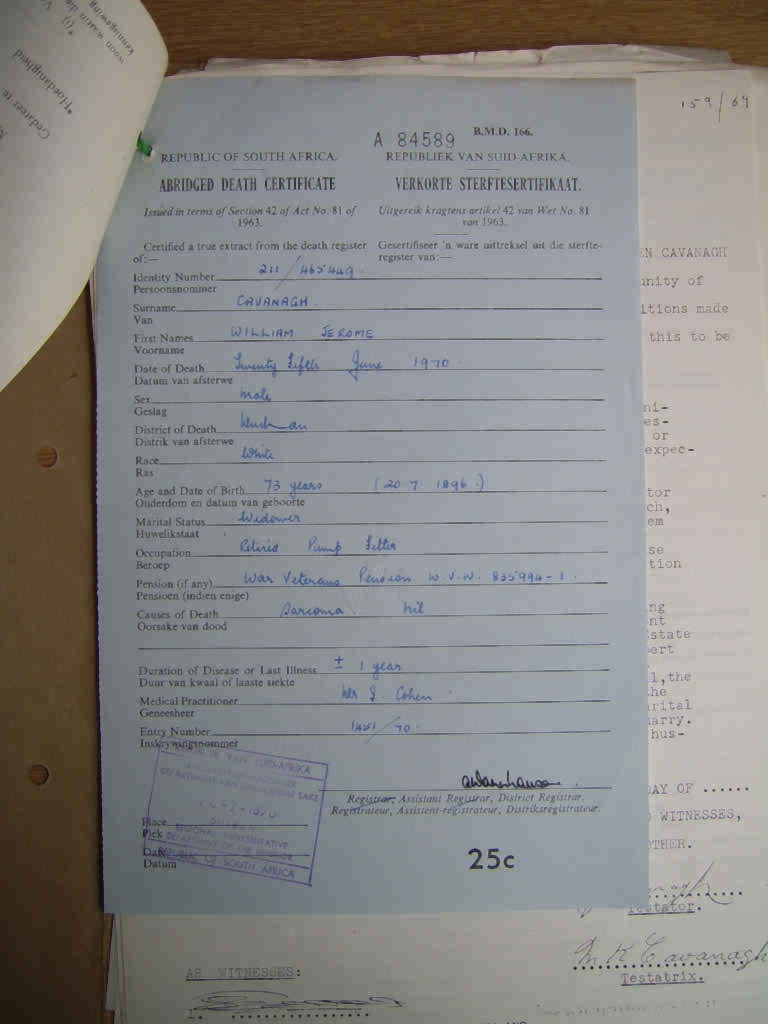 159/69
A 84589 B.M.D. 166.
REPUBLIC OF SOUTH AFRICA.
REPUBLIEK VAN SUID-AFRIKA.
ABRIDGED DEATH CERTIFICATE
VERKORTE STERFTESERTIFIKAAT.
Issued in terms of Section 42 of Act No. 81 of
1963.
Uitgereik kragtens artikel 42 van Wet No. 81
van 1963.
Certified a true extract from the death register
of:—
Gesertifiseer 'n ware uittreksel uit die sterfte-
register van:—
Identity Number 211/465449
Persoonsnommer
Surname CAVANAGH
Van
First Names WILLIAM JEROME
Voorname
Date of Death Twenty Fifth June 1970
Datum van afsterwe
Sex Male
Geslag
District of Death
Distrik van afsterwe
Race White
Ras
Age and Date of Birth 73 years (20.7.1896.)
Ouderdom en datum van geboorte
Marital Status Widower
Huwelikstaat
Occupation Retired Pump Fitter
Beroep
Pension (if any) War Veterans Pension W.V.N. 835994-1.
Pensioen (indien enige)
Causes of Death Sarcoma Nil
Oorsake van dood
Duration of Disease or Last Illness ± 1 year
Duur van kwaal of laaste siekte
Medical Practitioner I. Cohen
Geneesheer
Entry Number 1451/70.
Inskrywingsnommer
Registrar, Assistant Registrar, District Registrar.
Registrateur, Assistent-registrateur, Distriksregistrateur.
Place
Plek
Date
Datum
REPUBLIC OF SOUTH AFRICA
25c
EN CAVANAGH
unity of
itions made
this to be
ni-
es-
or
expec-
tor
ch,
em
se
tion
ng
nt
Estate
ert
l,the
he
arital
arry.
hus-
DAY OF ......
D WITNESSES,
OTHER.
Testator.
M K Cavanagh
Testatrix.
AS WITNESSES:
*Hoedanigheid